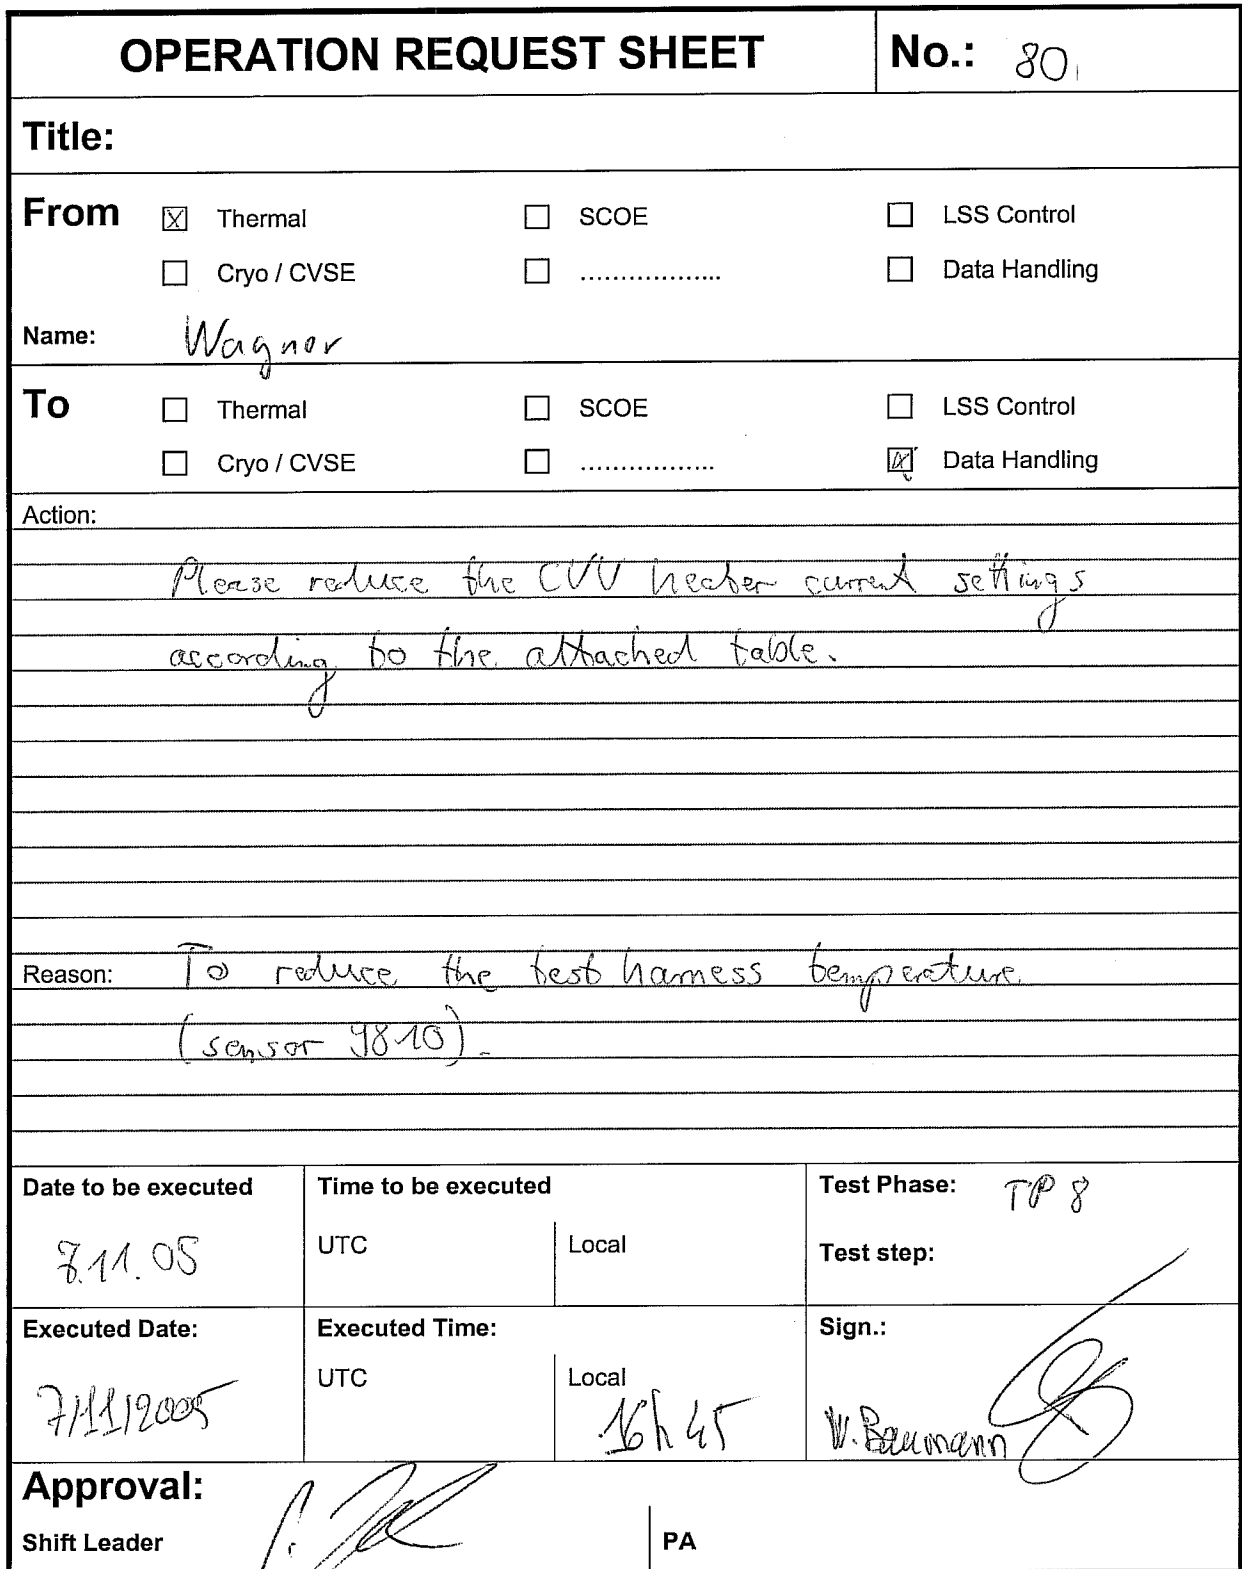 OPERATION REQUEST SHEET No.: 80
Title:
From ☒ Thermal ☐ SCOE ☐ LSS Control
☐ Cryo / CVSE ☐ .................. ☐ Data Handling
Name: Wagner
To ☐ Thermal ☐ SCOE ☐ LSS Control
☐ Cryo / CVSE ☐ ................. ☒ Data Handling
Action:
Please reduce the CVV heater current settings
according to the attached table.
Reason: To reduce the test harness temperature
(sensor 9810).
Date to be executed Time to be executed Test Phase: TP 8
UTC Local
.11.05
Test step:
Executed Date: Executed Time: Sign.:
UTC Local
7/11/2005 16h45 W. Baumann
Approval:
Shift Leader PA